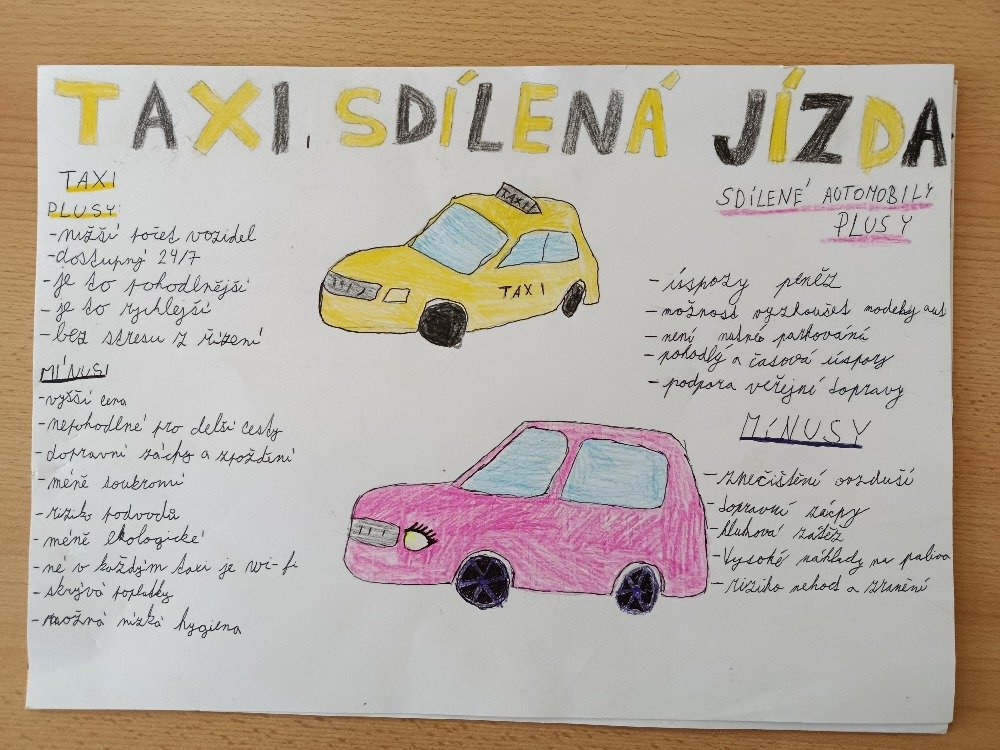 TAXI, SDÍLENÁ JÍZDA
TAXI
PLUSY:
- nižší počet vozidel
- dostupný 24/7
- je to pohodlnější
- je to rychlejší
- bez stresu z řízení
MÍNUSI
- vyšší cena
- nepohodlné pro delší cesty
- dopravní zácpy a zpoždění
- méně soukromí
- riziko podvodů
- méně ekologické
- né v každým taxi je wi-fi
- skrývá poplatky
- možná nízká hygiena
TAXI
TAXI
SDÍLENÉ AUTOMOBILY
PLUSY
- úspory peněz
- možnost vyzkoušet modely aut
- není nutné parkování
- pohodlý a časová úspory
- podpora veřejné dopravy
MÍNUSY
- znečištění ovzduší
- dopravní zácpy
- hluková zátěž
- Vysoké náklady na paliva
- riziko nehod a zranění